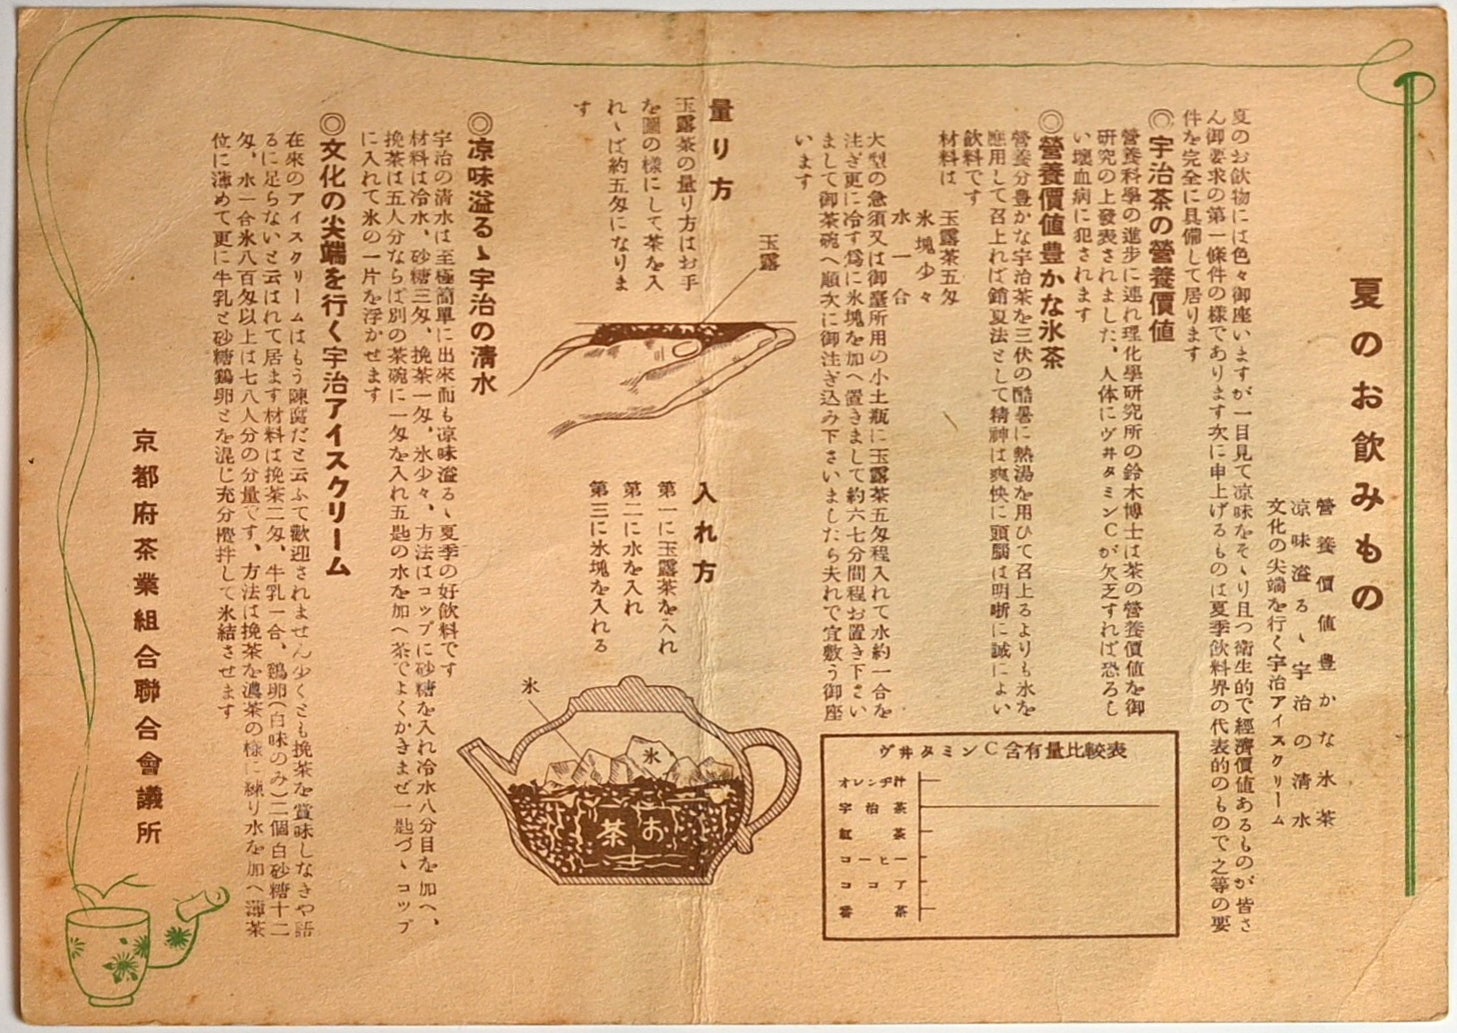 夏のお飲みもの
營養價値豊かな氷茶
凉味溢るゝ宇治の淸水
文化の尖端を行く宇治アイスクリーム
夏のお飮物には色々御座いますが一目見て凉味をそゝり且つ衛生的で經濟價値あるものが皆さ
ん御要求の第一條件の樣であります次に申上げるものは夏季飮料界の代表的のもので之等の要
件を完全に具備して居ります
◎宇治茶の營養價値
營養科學の進步に連れ理化學硏究所の鈴木博士は茶の營養價値を御
硏究の上發表されました、人体にヴヰタミンCが欠乏すれば恐ろし
い壞血病に犯されます
◎營養價値豊かな氷茶
營養分豊かな宇治茶を三伏の酷暑に熱湯を用ひて召上るよりも氷を
應用して召上れば銷夏法として精神は爽快に頭腦は明晰に誠によい
飮料です
材料は　玉露茶五匁
氷塊少々
水一合
大型の急須又は御臺所用の小土瓶に玉露茶五匁程入れて水約一合を
注ぎ更に冷す爲に氷塊を加へ置きまして約六七分間程お置き下さい
まして御茶碗へ順次に御注ぎ込み下さいましたら夫れで宜敷う御座
います
ヴヰタミンC含有量比較表
オレンヂ汁
宇治茶
紅茶
コーヒー
ココア
番茶
量り方
玉露茶の量り方はお手
を圖の樣にして茶を入
れゝば約五匁になりま
す
玉露
入れ方
第一に玉露茶を入れ
第二に水を入れ
第三に氷塊を入れる
氷
氷
お茶
◎凉味溢るゝ宇治の淸水
宇治の淸水は至極簡單に出來而も凉味溢るゝ夏季の好飮料です
材料は冷水、砂糖三匁、挽茶一匁、氷少々、方法はコップに砂糖を入れ冷水八分目を加へ、
挽茶は五人分ならば別の茶碗に一匁を入れ五匙の水を加へ茶でよくかきまぜ一匙づゝコップ
に入れて氷の一片を浮かせます
◎文化の尖端を行く宇治アイスクリーム
在來のアイスクリームはもう陳腐だと云ふて歡迎されません少くとも挽茶を賞味しなきや語
るに足らないと云はれて居ます材料は挽茶二匁、牛乳一合、鷄卵(白味のみ)二個白砂糖十二
匁、水一合氷八百匁以上は七八人分の分量です、方法は挽茶を濃茶の樣に練り水を加へ薄茶
位に薄めて更に牛乳と砂糖鷄卵とを混じ充分攪拌して氷結させます
京都府茶業組合聯合會議所